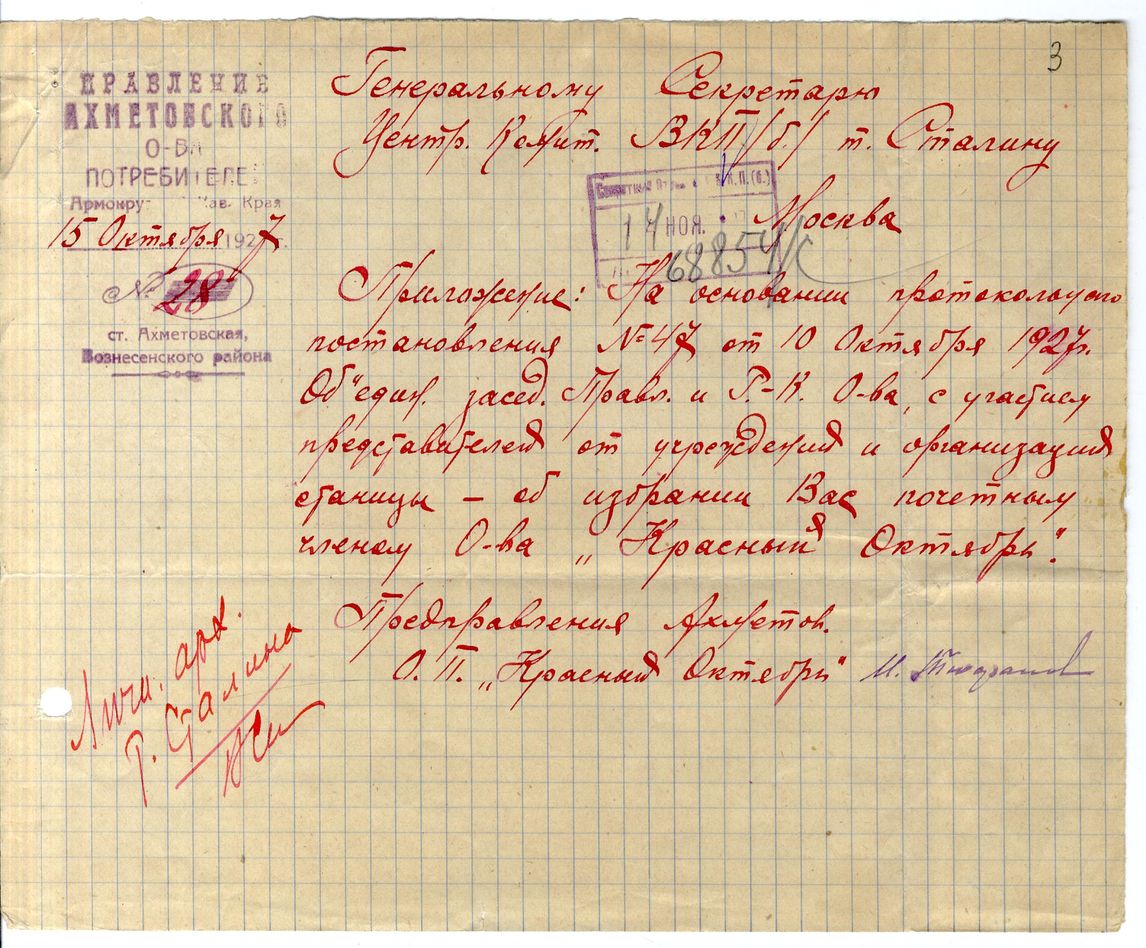 3
ПРАВЛЕНИЕ
АХМЕТОВСКОГО
О-ВА
ПОТРЕБИТЕЛЕ
Армокру Кав. Края
15 Октября 1927 г.
№ 28
ст. Ахметовская,
Вознесенского района
Генеральному Секретарю
Центр. Комит. ВКП/б/ т. Сталину
Москва
14 НОЯ.
68854/к
Приложение: На основании протокольного
постановления №47 от 10 Октября 1927г.
Об"един. засед. Правл. и Р.-К. О-ва, с участием
представителей от учреждений и организаций
станицы – об избрании Вас почетным
членом О-ва „Красный Октябрь".
Предправления Ахметов.
О.П. „Красный Октябрь" И.
Личн. арх.
т. Сталина